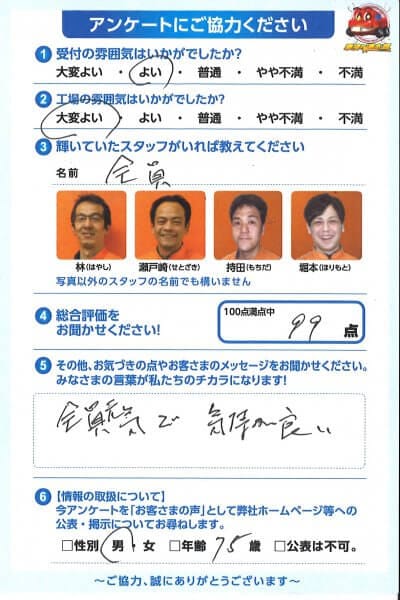 アンケートにご協力ください
1 受付の雰囲気はいかがでしたか?
大変よい ・ よい ・ 普通 ・ やや不満 ・ 不満
2 工場の雰囲気はいかがでしたか?
大変よい ・ よい ・ 普通 ・ やや不満 ・ 不満
3 輝いていたスタッフがいれば教えてください
名前 全員
林(はやし) 瀬戸崎(せとざき) 持田(もちだ) 堀本(ほりもと)
写真以外のスタッフの名前でも構いません
4 総合評価を
お聞かせください!
100点満点中
99 点
5 その他、お気づきの点やお客さまのメッセージをお聞かせください。
みなさまの言葉が私たちのチカラになります!
全員元気で 気持が良い
6 【情報の取扱について】
今アンケートを「お客さまの声」として弊社ホームページ等への
公表・掲示についてお尋ねします。
□性別 男・女 □年齢 75 歳 □公表は不可。
〜ご協力、誠にありがとうございます〜